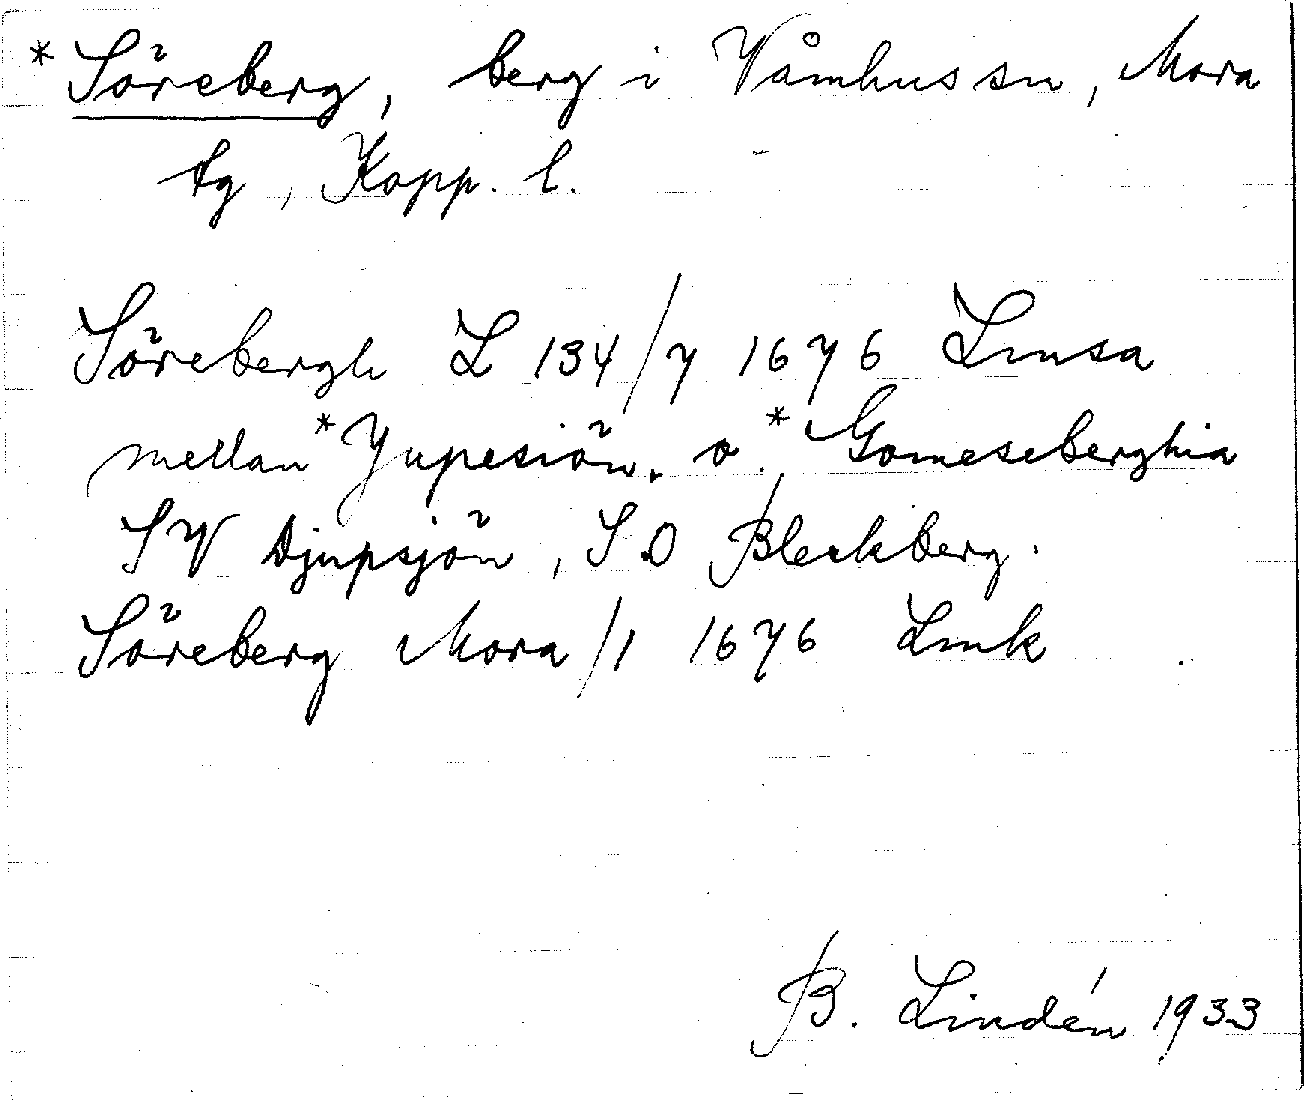 *Söreberg, berg i Våmhus sn, Mora
tg, Kopp. l.
Sörebergh L 134/7 1676 Lmsa
mellan *Jupesiön. o. *Gomeseberghia
SV Djupsjön, S.O Bleckberg.
Söreberg Mora/1 1676 Lmk
B. Lindén 1933